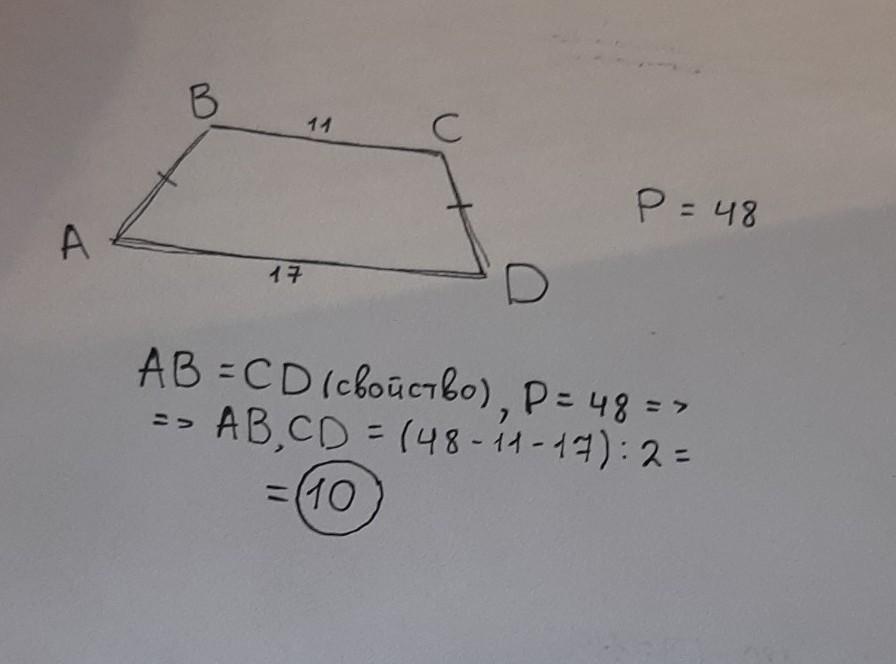 B
11
C
A
17
D
P = 48
AB = CD (свойство), P = 48 =>
=> AB, CD = (48 - 11 - 17) : 2 =
= 10